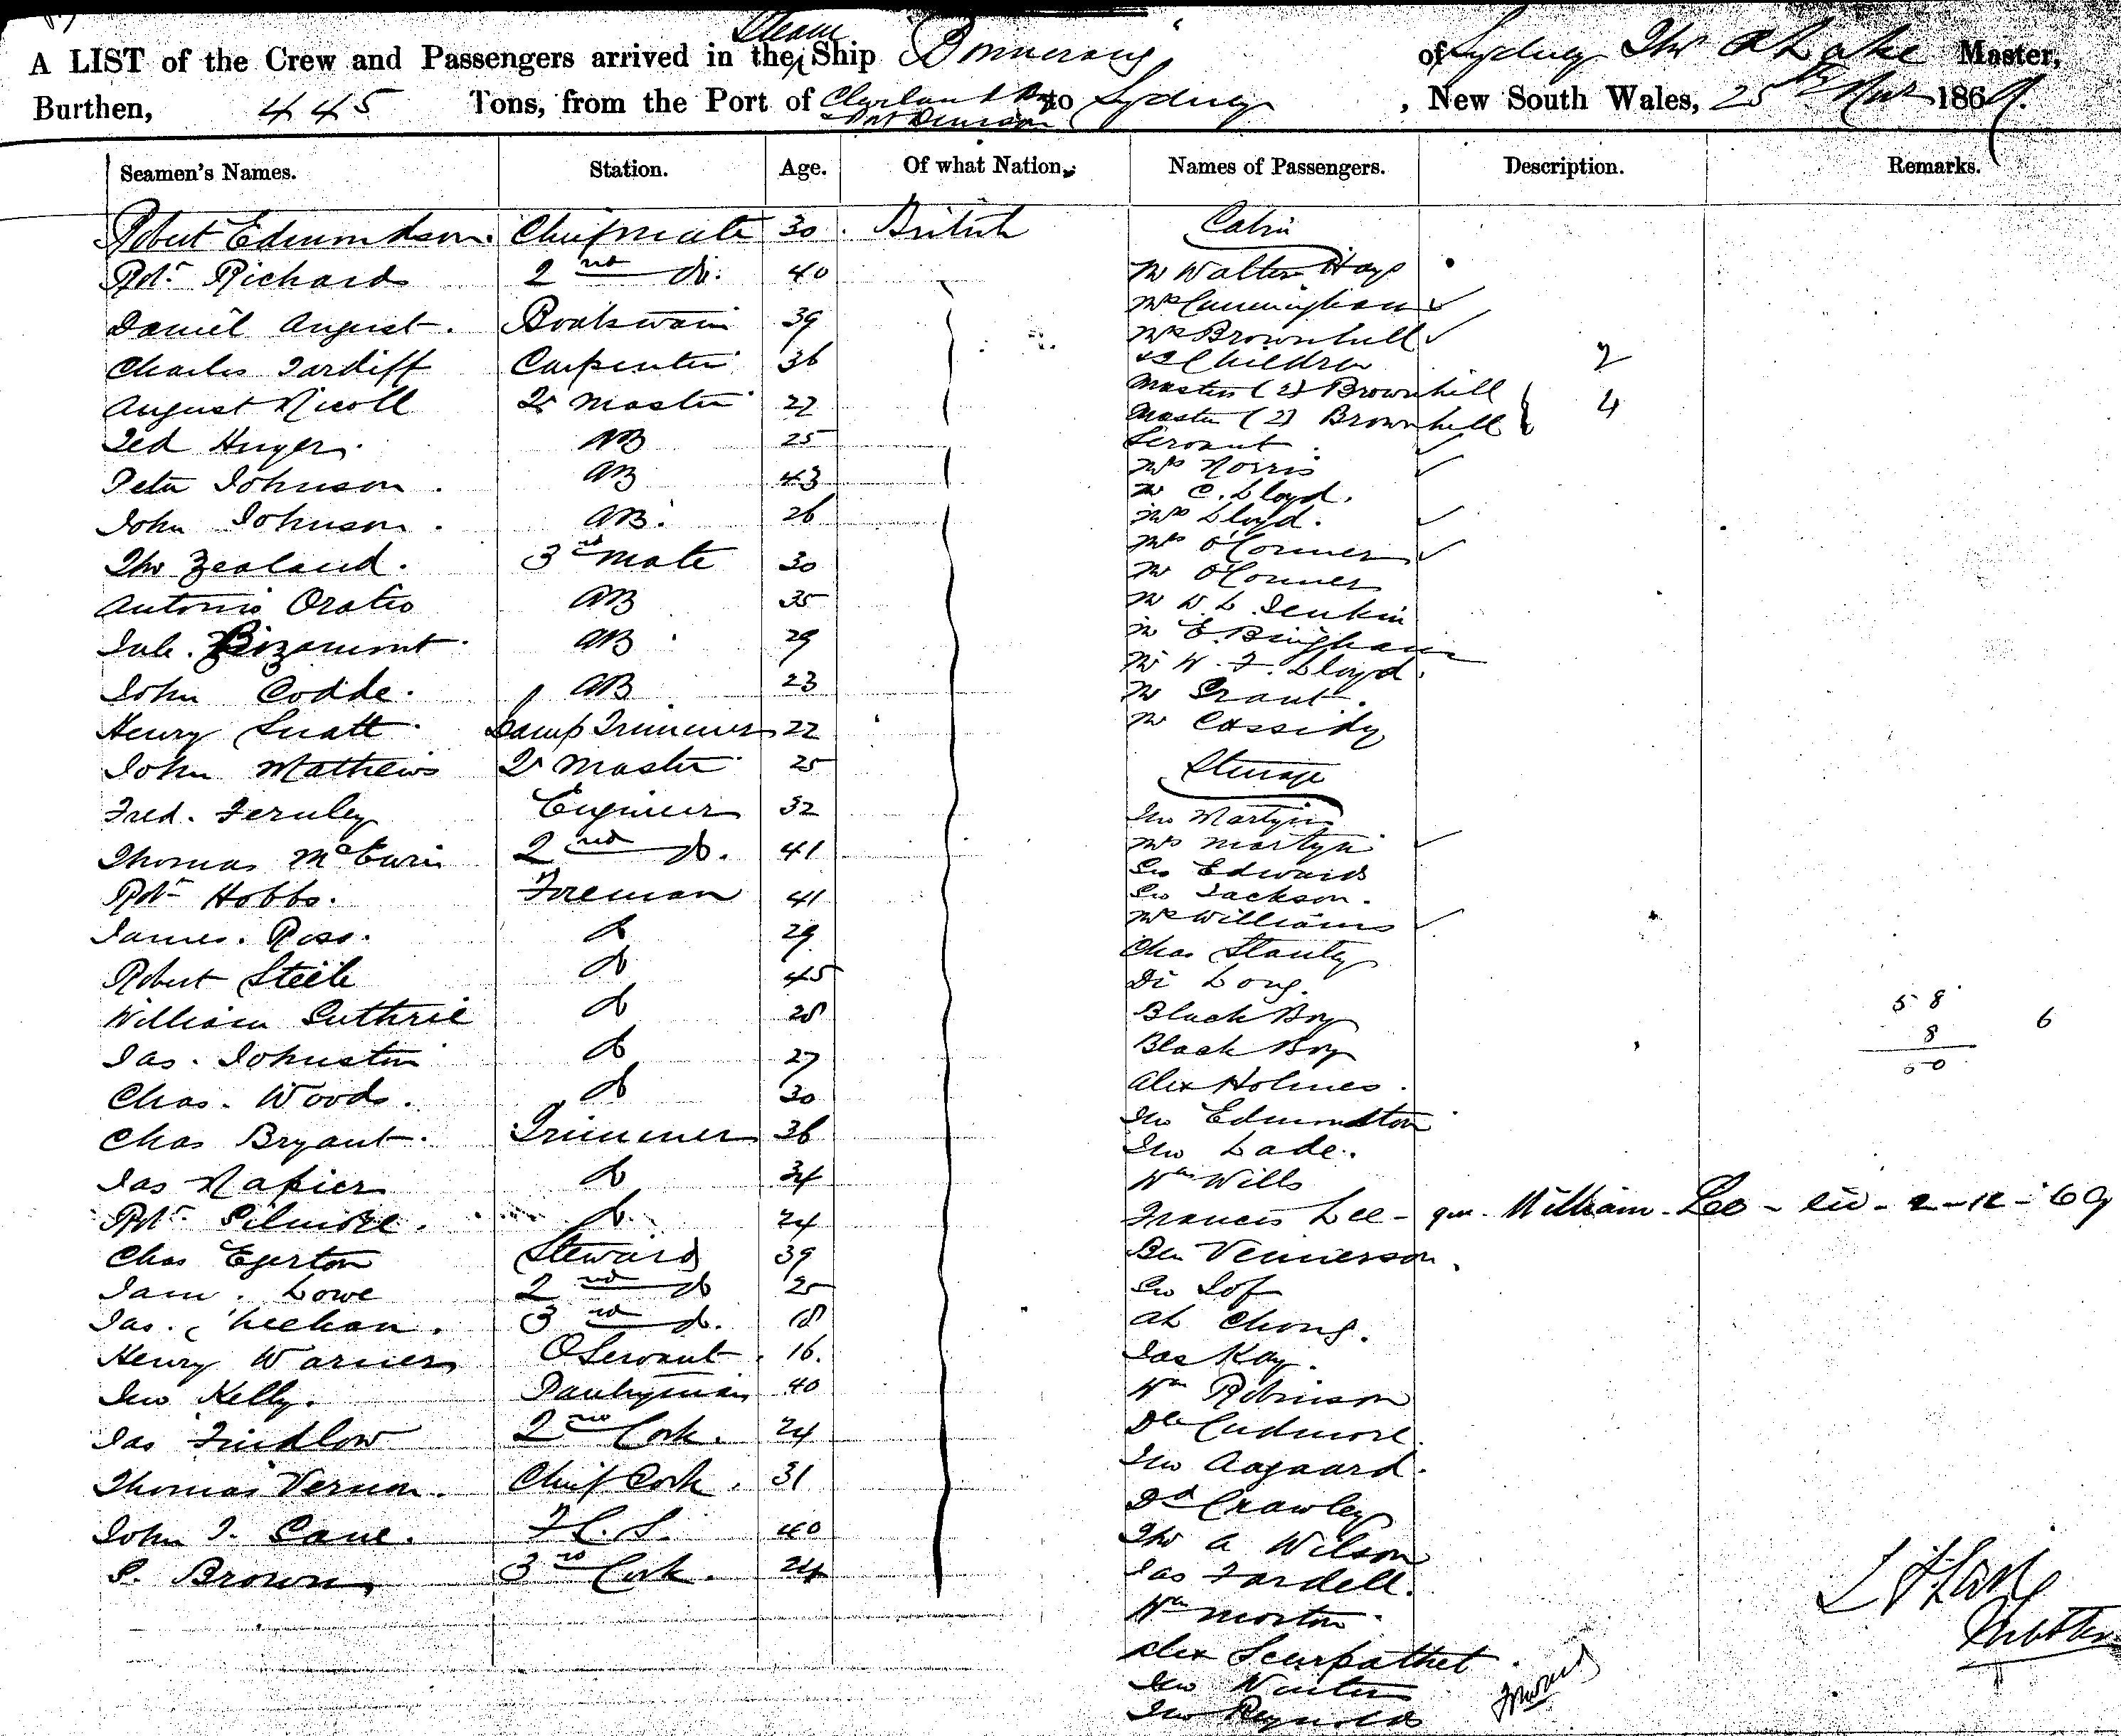 A LIST of the Crew and Passengers arrived in the Steam Ship Boomerang of Sydney Thos A Lake Master,
Burthen, 445 Tons, from the Port of Cleveland Bay & Port Denison to Sydney, New South Wales, 25th Nov 1869.
Seamen's Names. Station. Age. Of what Nation. Names of Passengers. Description. Remarks.
Robert Edmundson. Chief mate 30. British
Robt. Richard 2nd do. 40
Daniel August. Boatswain 39
Charles Tardiff Carpenter 36
August Nicoll Qr Master 22
Ted Huyer. AB 25
Peter Johnson. AB 43
John Johnson. AB. 26
Thos Zealand. 3rd mate 30
Antonio Oratio AB 35
Jule. Bizamont. AB 29
John Codde. AB 23
Henry Snatt. Lamp Trimmer 22
John Mathews Qr Master 25
Fred. Fernley Engineer 32
Thomas McEwin 2nd do. 41
Robt. Hobbs. Fireman 41
James. Ross. do 29
Robert Steele do 45
William Guthrie do 28
Jas. Johnston do 27
Chas. Woods. do 30
Chas Bryant. Trimmer 36
Jas Napier do 34
Robt. Gilmore. do. 24
Chas Egerton Steward 39
Sam. Lowe 2nd do 25
Jas. Sheehan. 3rd do. 18
Henry Warner O Servant. 16.
Jno Kelly. Pantryman 40
Jas Findlow 2nd Cook. 24
Thomas Vernon. Chief Cook. 31
John T. Cane. F.C.S. 40
S. Brown 3rd Cook. 24
Cabin
Mr Walter Hays
Mrs Cunningham
Mrs Brownhill
& 2 Children 2
Masters (2) Brownhill
Master (2) Brownhill 4
Servant
Mrs Norris
Mr C. Lloyd.
Mrs Lloyd.
Mrs O'Conner
Mr O'Conner
Mr W. L. Jenkin
Mr E. Bingham
Mr W. F. Lloyd.
Mr Grant.
Mr Cassidy
Steerage
Jno Martyn
Mrs Martyn
Geo Edwards
Geo Jackson.
Mrs Williams
Chas Stanley
Di Long.
Black Boy
Black Boy
Alex Holmes.
Jno Edmondston
Jno Lade.
Wm Wills
Francis Lee - William Lee - 2-12-69
Ben Vennerson.
Ah Chong.
Jas Kay.
Wm Robinson
Cudmore.
Jno Aagaard.
Dd Crawley
Thos A Wilson
Jas Fardell.
Wm Morton.
Alex
Jno
Jno Reynolds
58 6
8
50